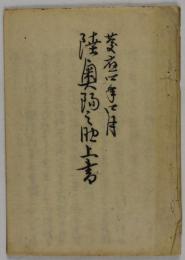 慶応四年四月
陸奥陽之助上書